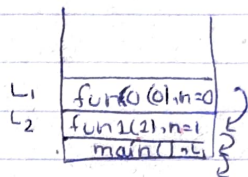 L₁ fun0(0), n=0
L₂ fun1(1), n=1
main() L₁